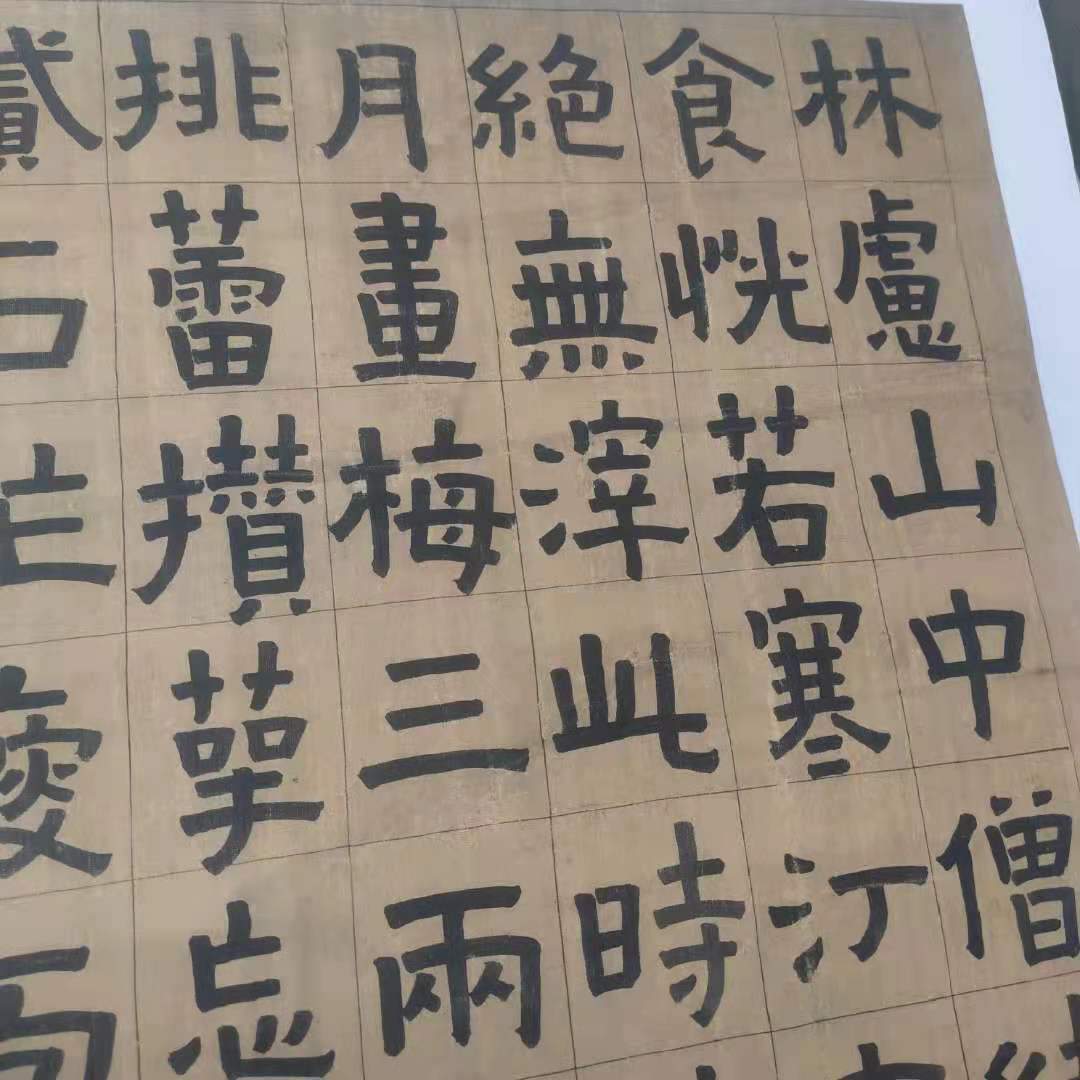 林慮山中僧
食恍若寒汀
絕無滓此時
月畫梅三兩
挑蕾攢萼忘